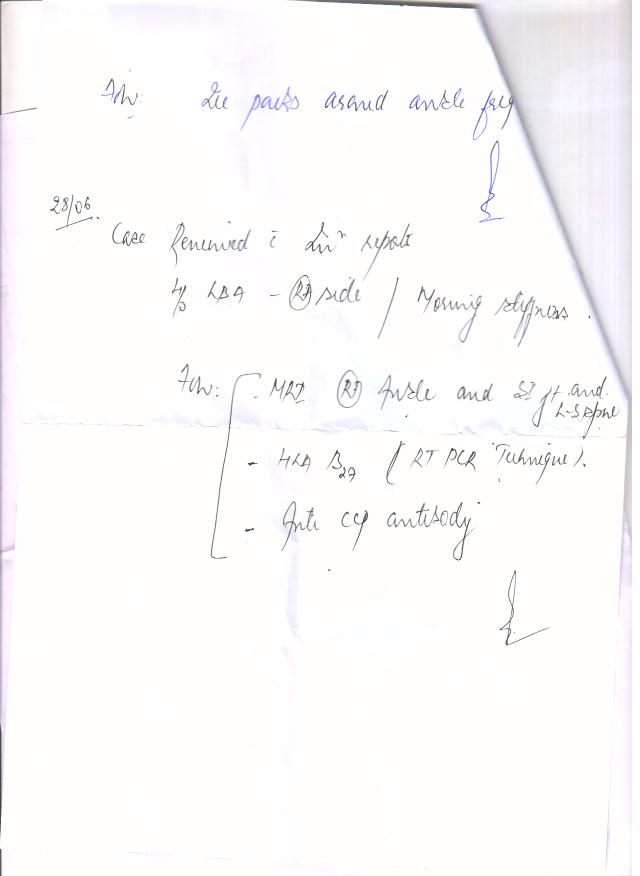 Adv: Ice packs around ankle freq
28/06.
Case Reviewed c̄ Invn reports
H/o LBA - Rt side / Morning stiffness.
Adv: - MRI Rt Ankle and SI jt. and L-S spine
- HLA B27 (RT PCR Technique).
- Anti CCP antibody